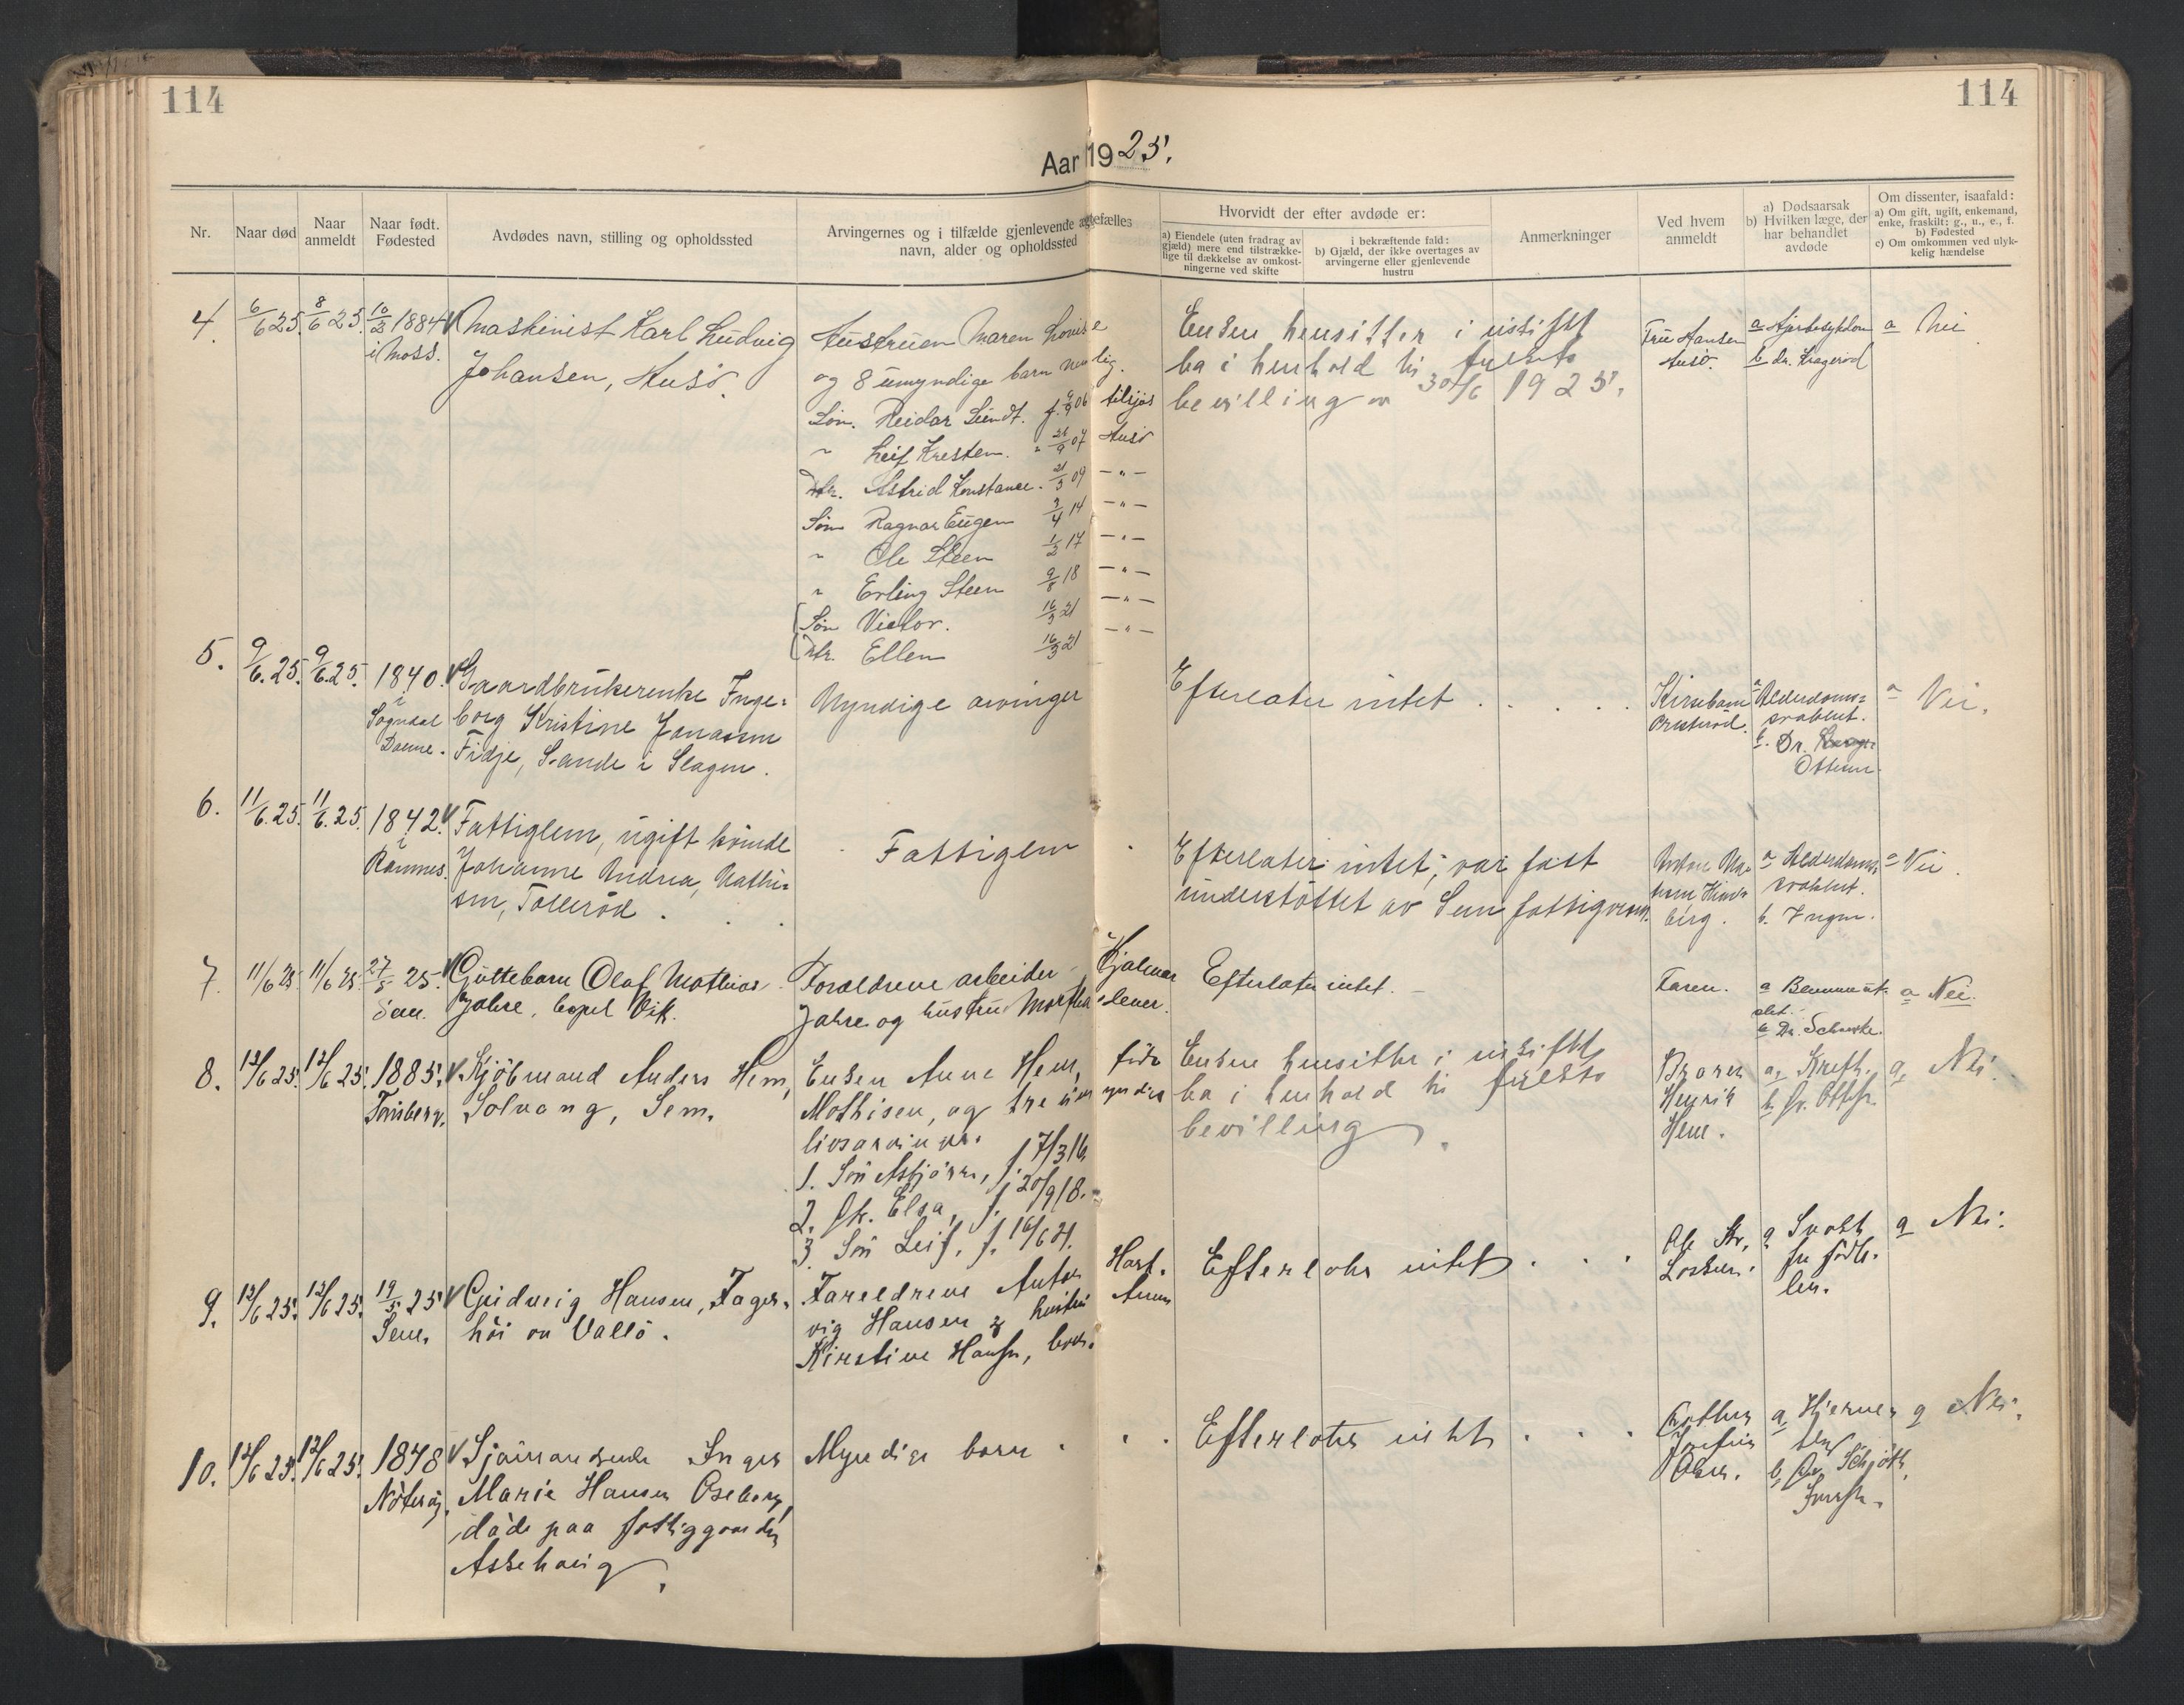 114
114
Aar 1925.
Nr.
Naar død
Naar anmeldt
Naar født. Fødested
Avdødes navn, stilling og opholdssted
Arvingernes og i tilfælde gjenlevende ægtefælles
navn, alder og opholdssted
Hvorvidt der efter avdøde er:
a) Eiendele (uten fradrag av gjæld) mere end tilstrækkelige til dækkelse av omkostningerne ved skifte
i bekræftende fald:
b) Gjæld, der ikke overtages av arvingerne eller gjenlevende hustru
Anmerkninger
Ved hvem anmeldt
a) Dødsaarsak
b) Hvilken læge, der har behandlet avdøde
Om dissenter, isaafald:
a) Om gift, ugift, enkemand, enke, fraskilt: g., u., e., f.
b) Fødested
c) Om omkommen ved ulykkelig hændelse
4. 6/6 25. 8/6 25. 10/2 1884 i Moss.
Maskinist Karl Ludvig
Johansen, Husø.
Hustruen Maren Lovise
og 8 umyndige barn nemlig.
Søn. Reidar Lundt. f. 06 tilsjøs
" Leif Kresten. " 07 Husø
Dtr. Astrid Konstance. 21/3 09 — " —
Søn Ragnar Eugen 3/4 14 — " —
" Ole Steen 1/2 17 — " —
" Erling Steen 9/8 18 — " —
Søn Victor. 16/3 21 — " —
Dtr. Ellen 16/3 21 — " —
Enken hensitter i uskiftet
bo i henhold til
bevilling av 30/6 1925.
Fru Hansen
Husø.
a Hjertesykdom
b dr. Kragerød
a Nei
5. 9/6. 25. 9/6. 25. 1840. i Sogndal Dalene.
Gaardbrukerenke Inge-
borg Kristine Jonassen
Fidje, Sande i Slagen.
Myndige arvinger
Efterlater intet . . . .
Kirsebom
Presterød.
a Alderdoms-
svakhet.
b. Dr.
Ottesen.
a Nei.
6. 11/6. 25. 11/6. 25. 1842. i Ramnes.
Fattiglem, ugift kvinde
Johanne Andrea Mathi-
sen, Tolerød .
Fattiglem
Efterlater intet; var fast
understøttet av Sem fattigvesen.
a Alderdoms
svakhet.
b. Ingen.
a Nei.
7. 11/6 25 11/6 25 27/5 25. Sem.
Guttebarn Olaf Mathias
Jahre, Vik.
Forældrene arbeider Hjalmar
Jahre og hustru Martha
Efterlater intet. —
Faren.
b Dr. Schouske.
a Nei.
8. 12/6 25. 12/6 25. 1885. Tønsberg.
Kjøbmand Anders Hem,
Solvang, Sem.
Enken Anne Hem, født
Mathisen, og tre umyndige
livsarvinger.
1. Søn Asbjørn, f. 7/3 16.
2. Dtr. Elsa, f. 20/9 18.
3. Søn Leif, f. 16/6 21.
Enken hensitter i uskiftet
bo i henhold til
bevilling.
Broren
Henrik
Hem.
a, Kreft.
b, Dr. Ottesen.
a, Nei.
9. 12/6 25. 12/6 25. 19/5 25 Sem.
Gudveig Hansen, Fager-
høi v Vallø.
Forældrene Hart-
vig Hansen & hustru
Kirstine Hansen,
Efterlater intet . . .
a Svakh.
fra føds-
len.
a Nei.
10. 12/6 25. 12/6 25. 1848 Nøterøy.
Sjømandsenke Inger
Marie Hansen Oseberg,
døde paa fattiggaarden
Askehaug.
Myndige barn . . .
Efterlater intet . . .
Josefine
Olsen.
a, Hjerne-
b, Dr. Schjøth
a Nei.